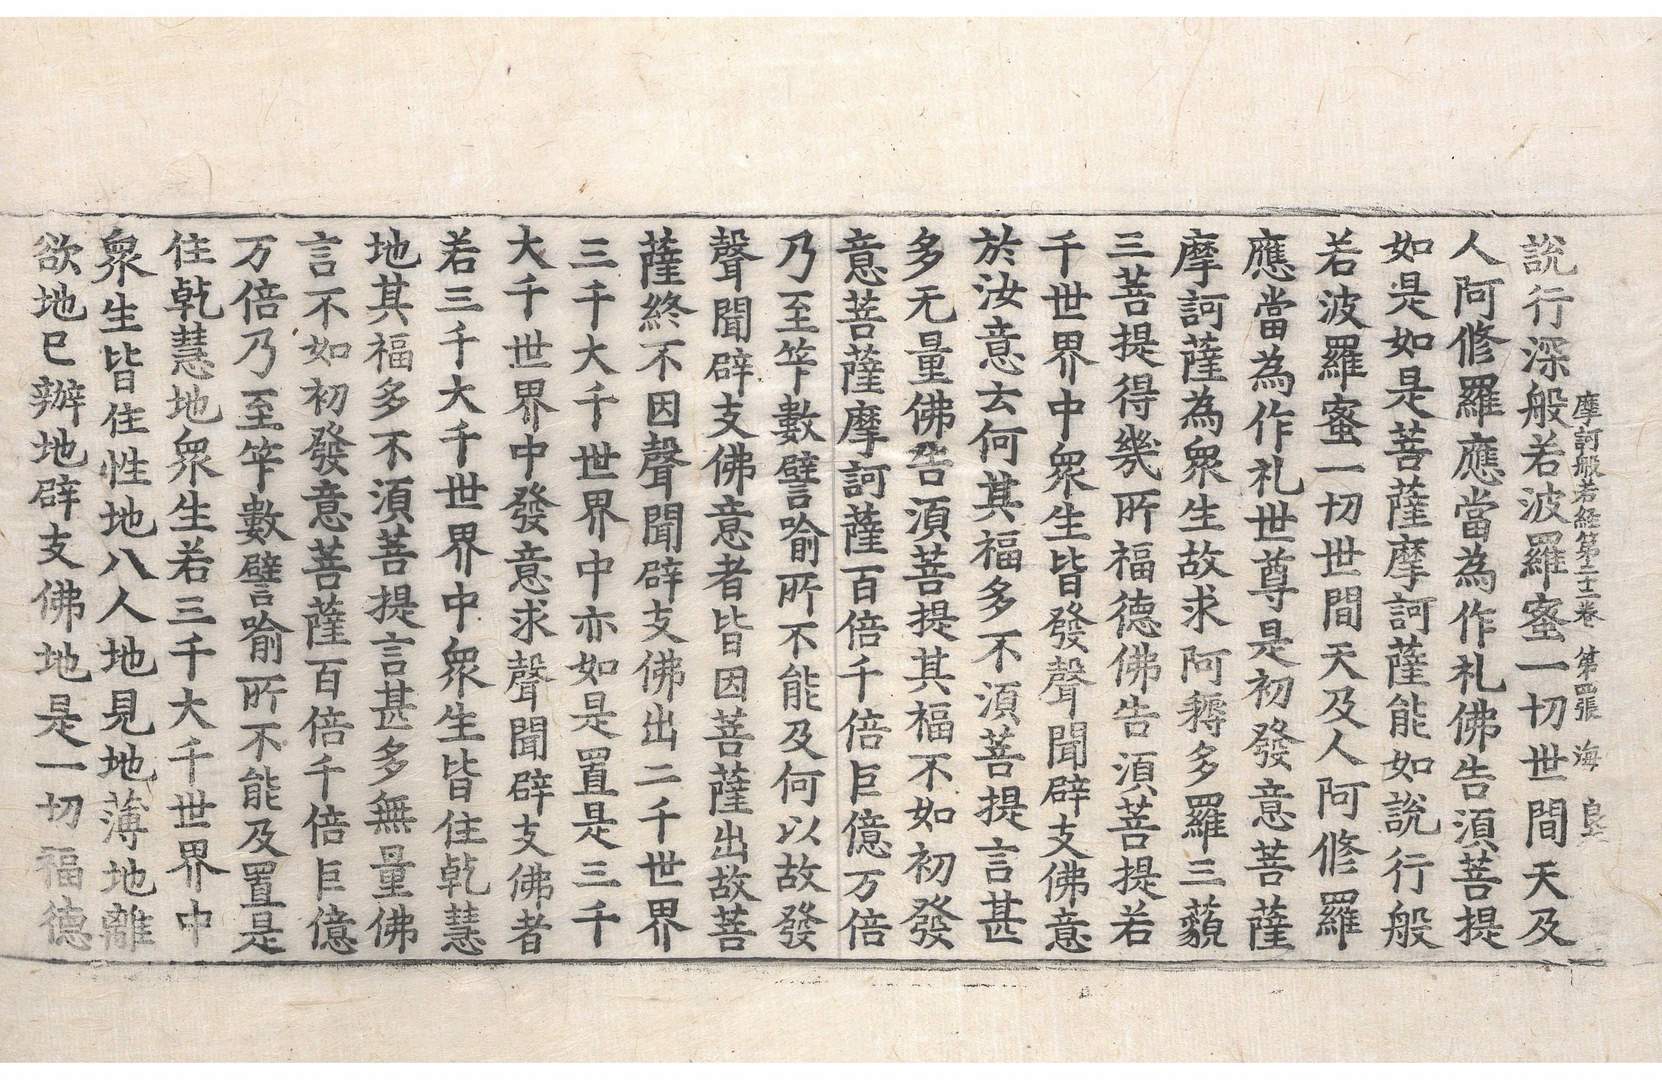 摩訶般若経第二十二卷 第四張 海 良
說行深般若波羅蜜一切世間天及
人阿修羅應當為作礼佛告湏菩提
如是如是菩薩摩訶薩能如說行般
若波羅蜜一切世間天及人阿修羅
應當為作礼世尊是初發意菩薩
摩訶薩為衆生故求阿耨多羅三藐
三菩提得幾所福德佛告湏菩提若
千世界中衆生皆發聲聞辟支佛意
於汝意云何其福多不湏菩提言甚
多无量佛告湏菩提其福不如初發
意菩薩摩訶薩百倍千倍巨億万倍
乃至筭數譬喻所不能及何以故發
聲聞辟支佛意者皆因菩薩出故菩
薩終不因聲聞辟支佛出二千世界
三千大千世界中亦如是置是三千
大千世界中發意求聲聞辟支佛者
若三千大千世界中衆生皆住乾慧
地其福多不湏菩提言甚多無量佛
言不如初發意菩薩百倍千倍巨億
万倍乃至筭數譬喻所不能及置是
住乾慧地衆生若三千大千世界中
衆生皆住性地八人地見地薄地離
欲地已辦地辟支佛地是一切福德